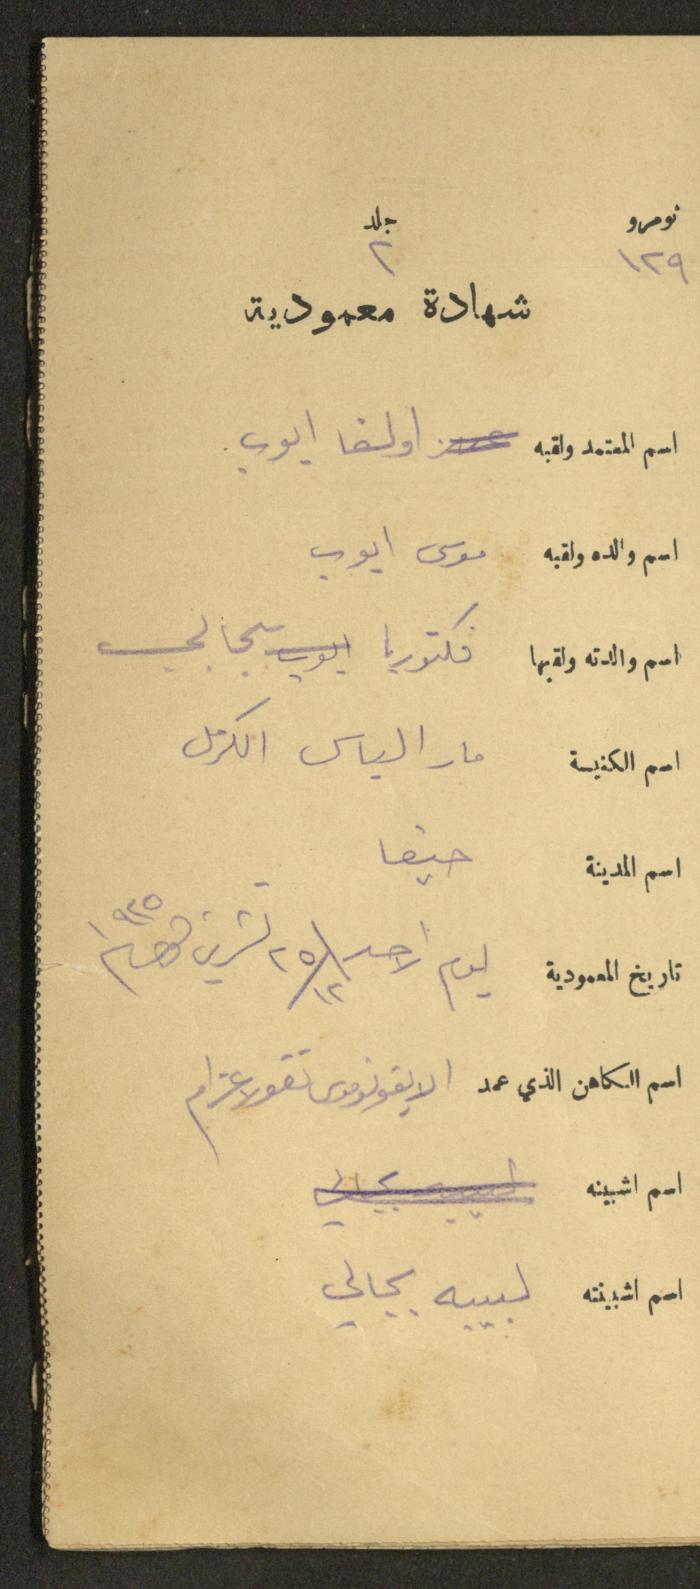 نومرو جلد
١٢٩ ٢
شهادة معمودية
اسم المعتمد ولقبه اولغا ايوب
اسم والده ولقبه موسى ايوب
اسم والدته ولقبها فكتوريا ايوب بجالي
اسم الكنيسة مار الياس الكرمل
اسم المدينة حيفا
تاريخ المعمودية ليوم الاحد ٢٥/١٢ تشرين ١٩٢٥
اسم الكاهن الذي عمد الايقونوموس نقولا
اسم اشبينه لبيبه بجالي
اسم اشبينته لبيبه بجالي